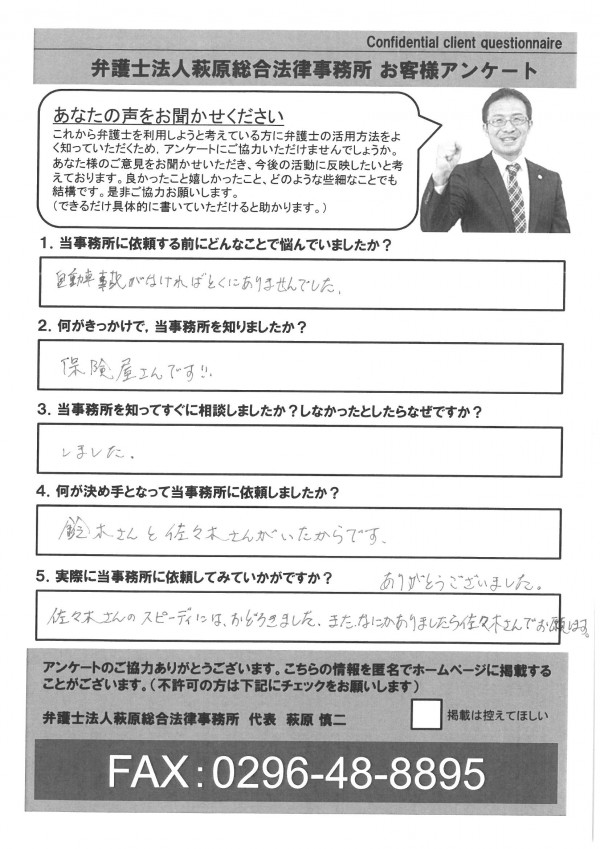 Confidential client questionnaire
弁護士法人萩原総合法律事務所 お客様アンケート
あなたの声をお聞かせください
これから弁護士を利用しようと考えている方に弁護士の活用方法をよ
く知っていただくため、アンケートにご協力いただけませんでしょうか。
あなた様のご意見をお聞かせいただき、今後の活動に反映したいと考
えております。良かったこと嬉しかったこと、どのような些細なことでも
結構です。是非ご協力お願いします。
(できるだけ具体的に書いていただけると助かります。)
1. 当事務所に依頼する前にどんなことで悩んでいましたか?
自動車事故がなければとくにありませんでした。
2. 何がきっかけで、当事務所を知りましたか?
保険屋さんです!!
3. 当事務所を知ってすぐに相談しましたか?しなかったとしたらなぜですか?
しました。
4. 何が決め手となって当事務所に依頼しましたか?
鈴木さんと佐々木さんがいたからです、
5. 実際に当事務所に依頼してみていかがですか?
ありがとうございました。
佐々木さんのスピーディには、おどろきました、また、なにかありましたら佐々木さんでお願います。
アンケートのご協力ありがとうございます。こちらの情報を匿名でホームページに掲載する
ことがございます。(不許可の方は下記にチェックをお願いします)
弁護士法人萩原総合法律事務所 代表 萩原 慎二
掲載は控えてほしい
FAX:0296-48-8895